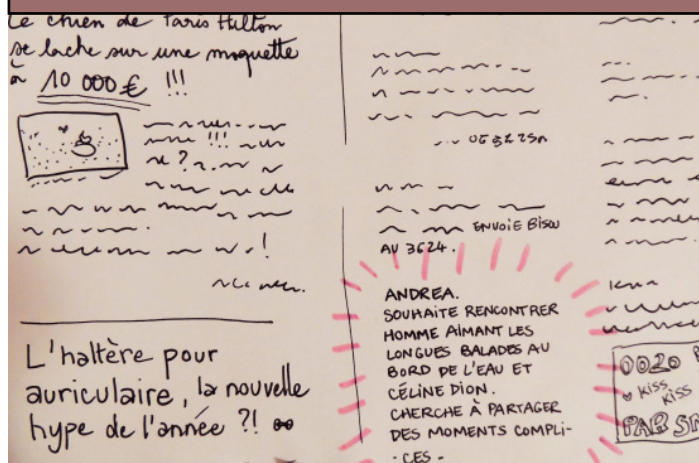 Le chien de Paris Hilton
se lache sur une moquette
à 10 000 € !!!
L'haltère pour
auriculaire, la nouvelle
hype de l'année ?!
ENVOiE BiSOU
AU 3624.
ANDREA.
SOUHAiTE RENCONTRER
HOMME AiMANT LES
LONGUES BALADES AU
BORD DE L'EAU ET
CÉLiNE DiON.
CHERCHE À PARTAGER
DES MOMENTS COMPLi-
-CES-
0020
KiSS
KiSS
PAR